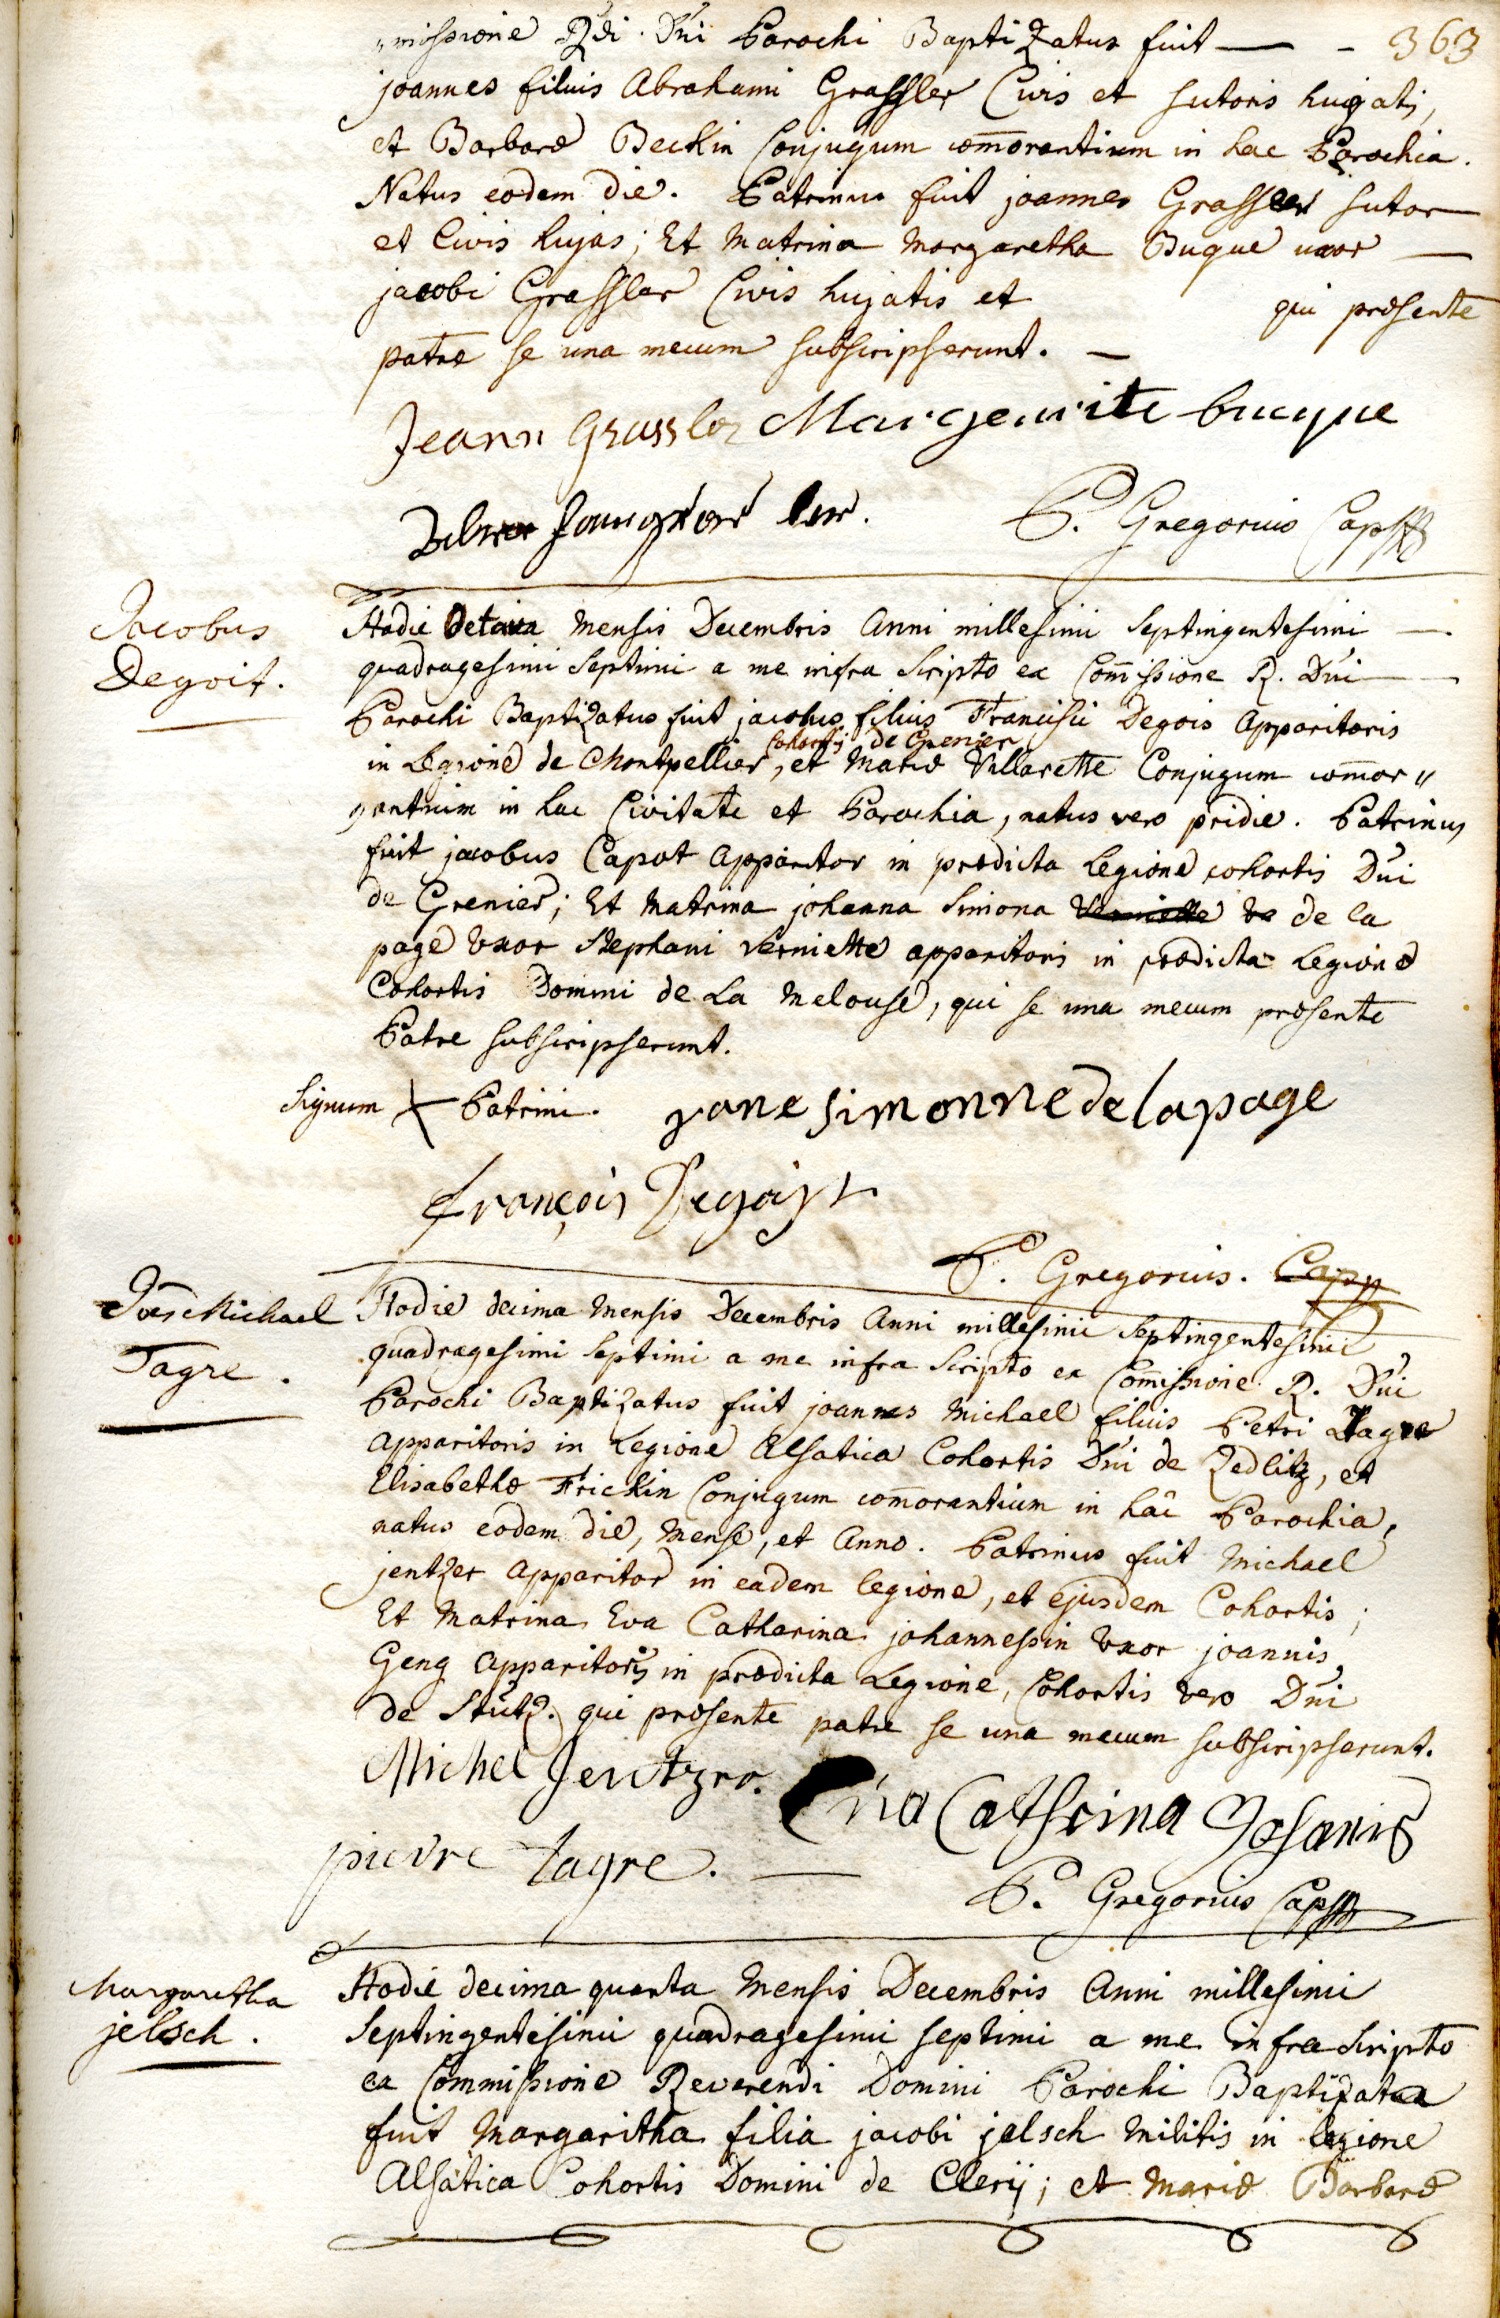 „missione Rdi. Dni Parochi Baptizatus fuit — - 363
joannes filius Abrahami Grassler Civis et sutoris hujatis,
et Barbaræ Beckin Conjugum comorantium in hac Parochia.
Natus eodem die. Patrinus fuit joannes Grassler sutor
et Civis hujas; Et Matrina Margaretha Buque uxor —
jacobi Grassler Civis hujatis et qui præsente
patre se una mecum subscripserunt. —
Jeann Grassler Margeurite bucque
P. Gregorius Capss
Jacobus
Degoit.
Hodie mensis Decembris Anni millesimi septingentesimi —
quadragesimi septimi a me infra scripto ex Comissione R. Dni —
Parochi Baptizatus fuit jacobus filius Francisci Degois Apparitoris
Cohortis de Grenier
in Legione de Montpellier, et Mariæ Villarette Conjugum comor„
„antium in hac Civitate et Parochia, natus vero pridie. Patrinus
fuit jacobus Capot Apparitor in prædicta Legione cohortis Dni
de Grenier; Et Matrina johanna Simona Verniette vx de la
page Vxor Stephani Verniette apparitoris in prædicta Legione
Cohortis Domini de La Melouse, qui se una mecum præsente
Patre subscripserunt.
Signum + Patrini. yane simonne de lapage
françois Degoist
P. Gregorius. Capp
Joes Michael
Tagre.
Hodie decima mensis Decembris Anni millesimi septingentesimi
quadragesimi septimi a me infra scripto ex Comissione R. Dni
Parochi Baptizatus fuit joannes Michael filius Petri Tagre
Apparitoris in Legione Alsatica Cohortis Dni de Zedlitz, et
Elisabethæ Frickin Conjugum comorantium in hâc Parochia,
natus eodem die, mense, et Anno. Patrinus fuit Michael
jentzer Apparitor in eadem legione, et ejusdem Cohortis;
Et Matrina Eva Catharina johannessin Vxor joannis
Geng Apparitoris in prædicta Legione, Cohortis vero Dni
de Stutz. qui præsente patre se una mecum subscripserunt.
Michel Jentzer. Eva Cathrina Johanis
pierre tagre. —
P. Gregorius Capss
Margaretha
jelsch.
Hodie decima quarta Mensis Decembris Anni millesimi
Septingentesimi quadragesimi septimi a me infra scripto
ex Commissione Reverendi Domini Parochi Baptizata
fuit Margaritha filia jacobi jelsch Militis in legione
Alsatica Cohortis Domini de Clerij; et Mariæ Barbaræ